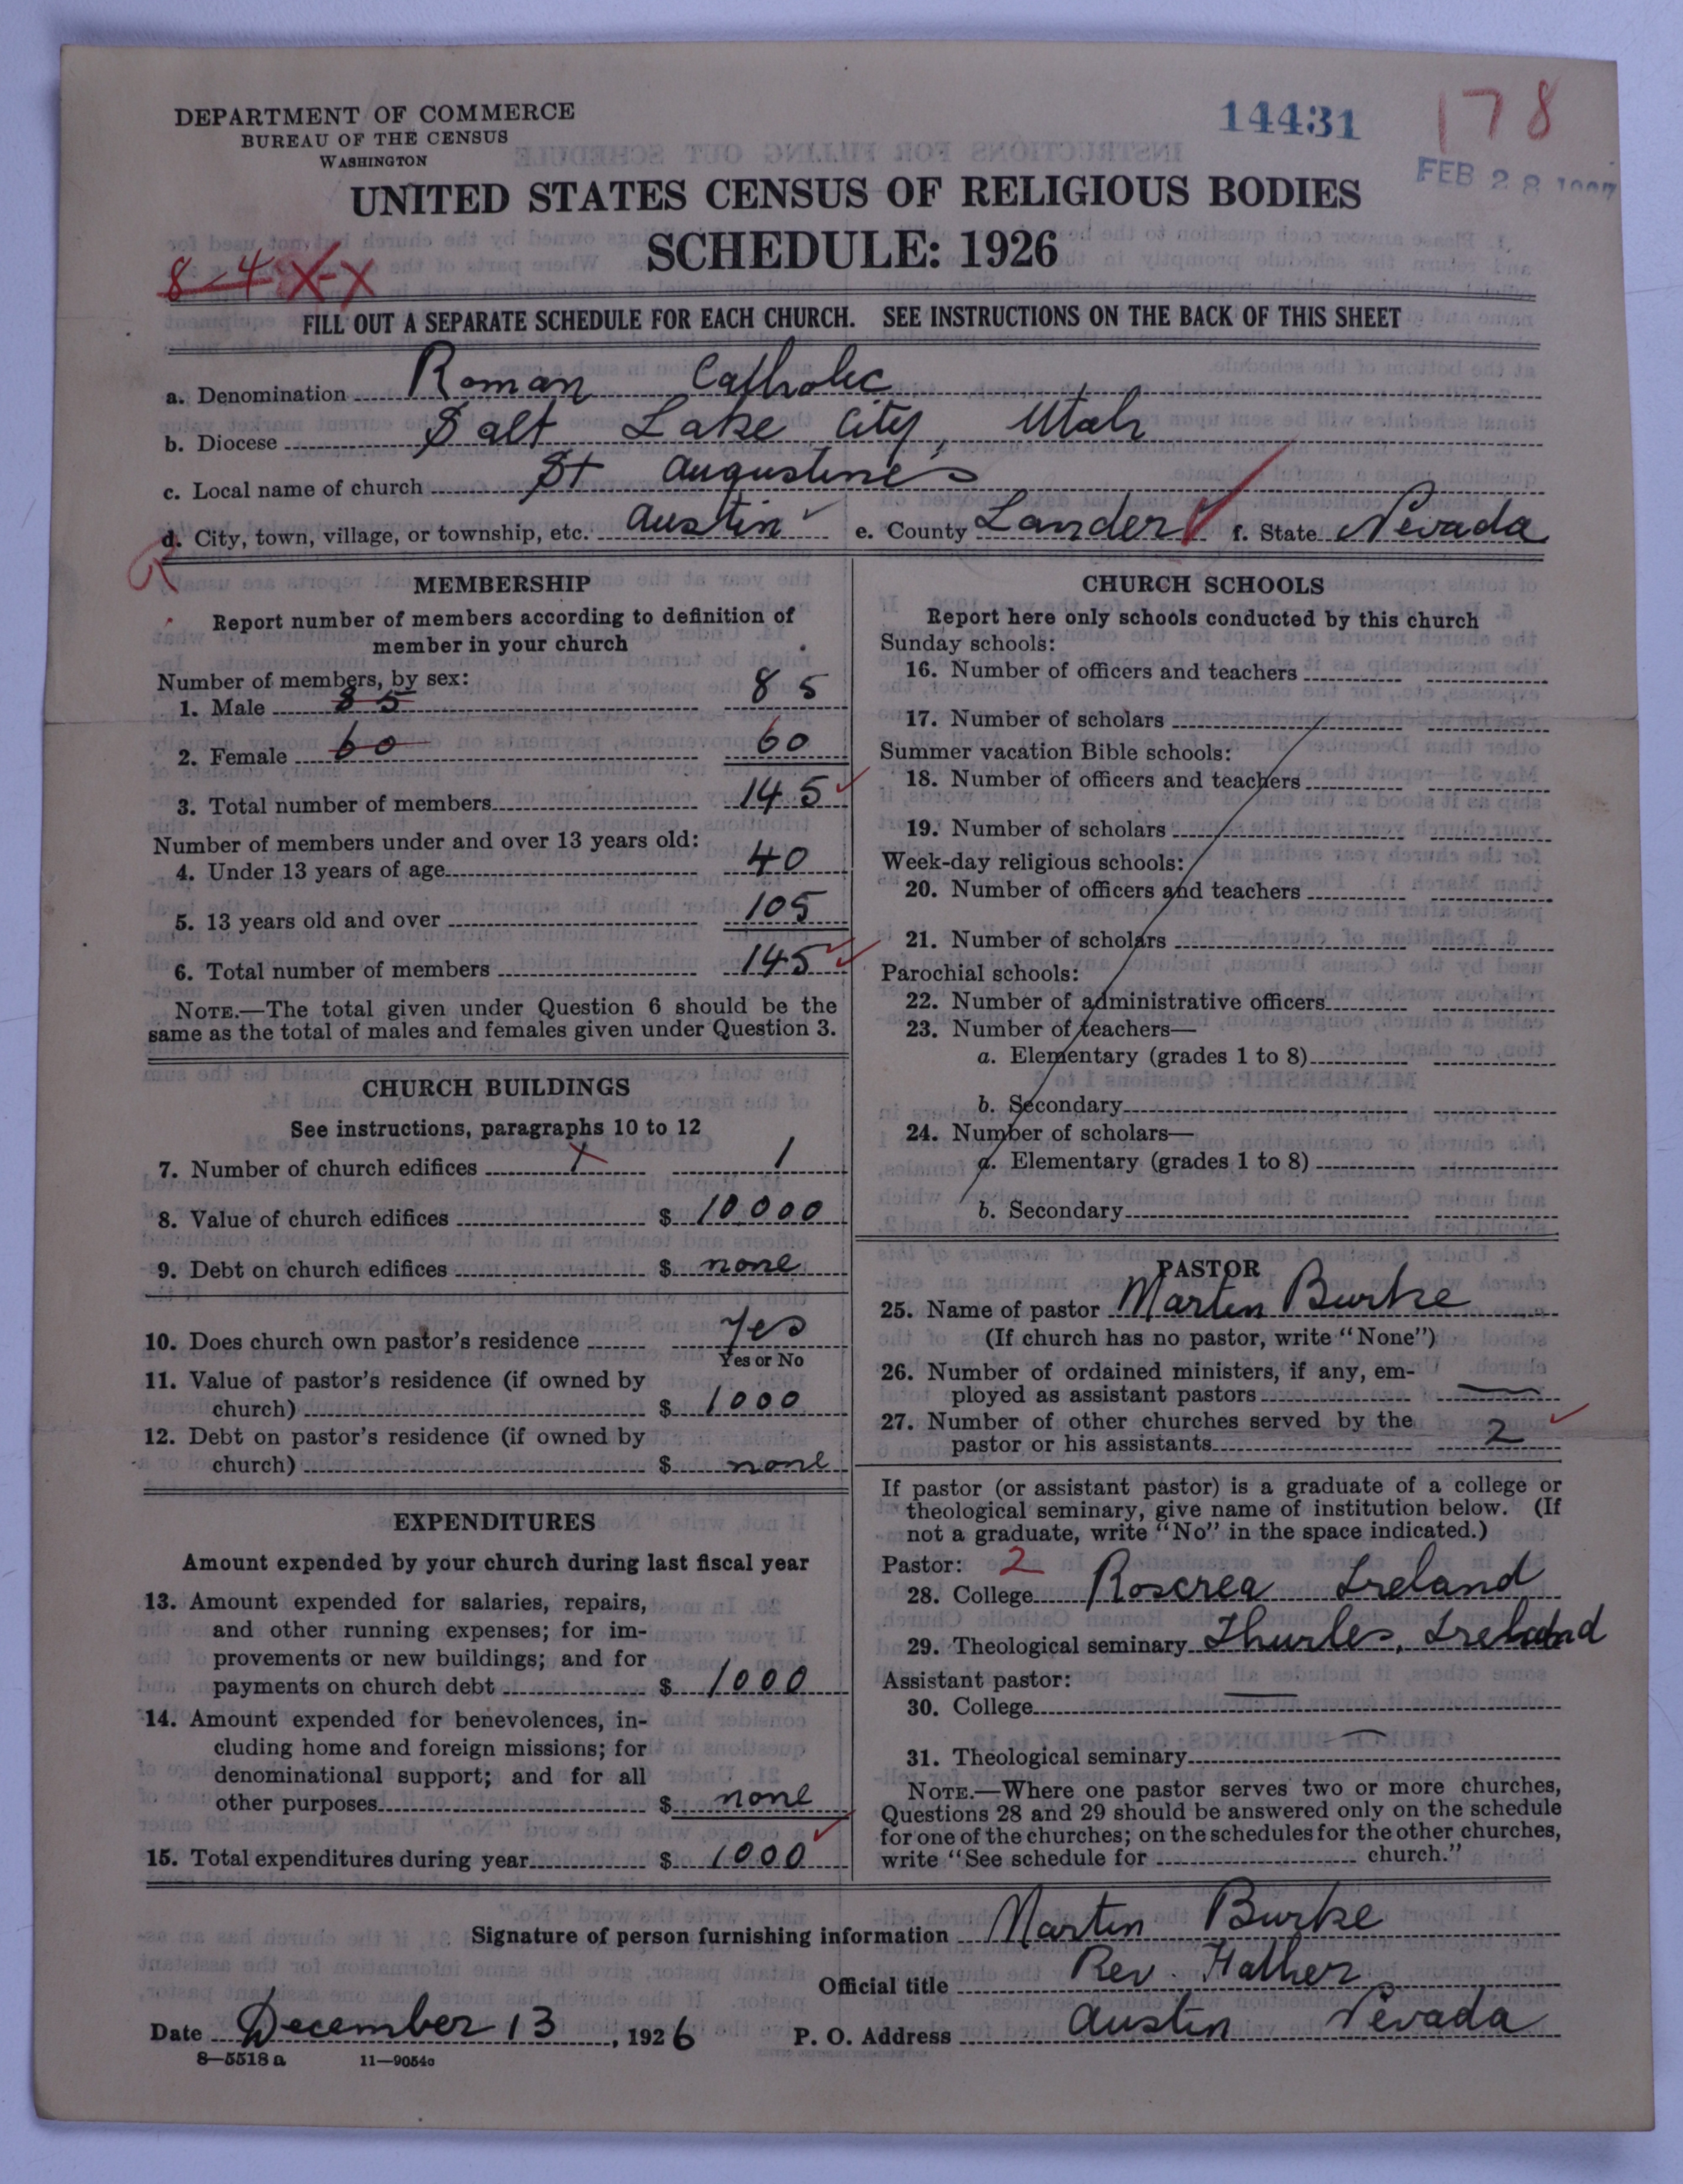 DEPARTMENT OF COMMERCE
BUREAU OF THE CENSUS
WASHINGTON
14431
178
FEB 28
UNITED STATES CENSUS OF RELIGIOUS BODIES
SCHEDULE: 1926
8-4 X-X
FILL OUT A SEPARATE SCHEDULE FOR EACH CHURCH. SEE INSTRUCTIONS ON THE BACK OF THIS SHEET
a. Denomination Roman Catholic
b. Diocese Salt Lake City, Utah
c. Local name of church St Augustine's
d. City, town, village, or township, etc. Austin e. County Lander f. State Nevada
MEMBERSHIP
Report number of members according to definition of
member in your church
Number of members, by sex:
1. Male 85 85
2. Female 60 60
3. Total number of members 145
Number of members under and over 13 years old:
4. Under 13 years of age 40
5. 13 years old and over 105
6. Total number of members 145
NOTE.—The total given under Question 6 should be the
same as the total of males and females given under Question 3.
CHURCH BUILDINGS
See instructions, paragraphs 10 to 12
7. Number of church edifices 1 1
8. Value of church edifices $ 10000
9. Debt on church edifices $ none
10. Does church own pastor's residence Yes
Yes or No
11. Value of pastor's residence (if owned by
church) $ 1000
12. Debt on pastor's residence (if owned by
church) $ none
EXPENDITURES
Amount expended by your church during last fiscal year
13. Amount expended for salaries, repairs,
and other running expenses; for im-
provements or new buildings; and for
payments on church debt $ 1000
14. Amount expended for benevolences, in-
cluding home and foreign missions; for
denominational support; and for all
other purposes $ none
15. Total expenditures during year $ 1000
CHURCH SCHOOLS
Report here only schools conducted by this church
Sunday schools:
16. Number of officers and teachers
17. Number of scholars
Summer vacation Bible schools:
18. Number of officers and teachers
19. Number of scholars
Week-day religious schools:
20. Number of officers and teachers
21. Number of scholars
Parochial schools:
22. Number of administrative officers
23. Number of teachers—
a. Elementary (grades 1 to 8)
b. Secondary
24. Number of scholars—
a. Elementary (grades 1 to 8)
b. Secondary
PASTOR
25. Name of pastor Martin Burke
(If church has no pastor, write "None")
26. Number of ordained ministers, if any, em-
ployed as assistant pastors —
27. Number of other churches served by the
pastor or his assistants 2
If pastor (or assistant pastor) is a graduate of a college or
theological seminary, give name of institution below. (If
not a graduate, write "No" in the space indicated.)
Pastor: 2
28. College Roscrea Ireland
29. Theological seminary Thurles, Ireland
Assistant pastor:
30. College —
31. Theological seminary —
NOTE.—Where one pastor serves two or more churches,
Questions 28 and 29 should be answered only on the schedule
for one of the churches; on the schedules for the other churches,
write "See schedule for church."
Signature of person furnishing information Martin Burke
Official title Rev. Father
Date December 13, 1926 P. O. Address Austin Nevada
8—5518 a 11—9054c